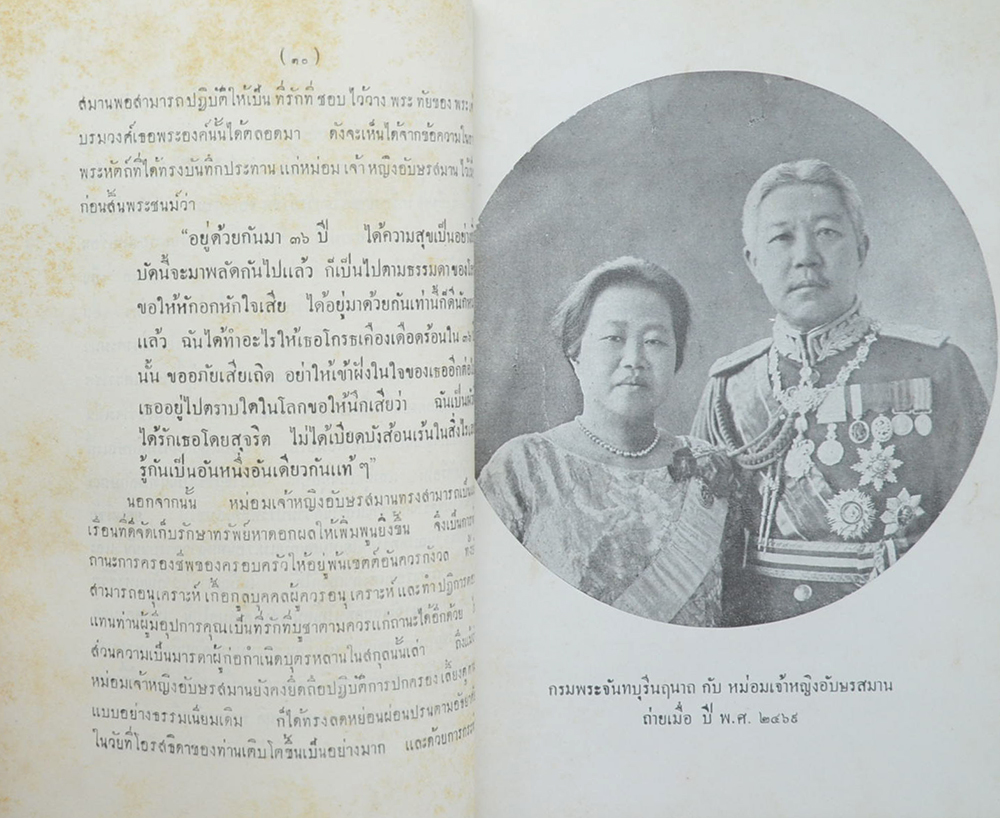 ( ๓๐ )
สมานพอสามารถปฏิบัติให้เป็น ที่รักที่ ชอบ ไว้วาง พระ ทัยของ พระ
บรมวงศ์เธอพระองค์นั้นได้ตลอดมา ดังจะเห็นได้จากข้อความใน
พระหัตถ์ที่ได้ทรงบันทึกประทาน แก่หม่อม เจ้า หญิงอับษรสมาน ไว้
ก่อนสิ้นพระชนม์ว่า
“อยู่ด้วยกันมา ๓๖ ปี ได้ความสุขเป็นอย่าง
บัดนี้จะมาพลัดกันไปแล้ว ก็เป็นไปตามธรรมดาของ
ขอให้หักอกหักใจเสีย ได้อยู่มาด้วยกันเท่านี้ก็ดีนัก
แล้ว ฉันได้ทำอะไรให้เธอโกรธเคืองเดือดร้อนใน ๓๖
นั้น ขออภัยเสียเถิด อย่าให้เข้าฝังในใจของเธออีก
เธออยู่ไปตราบใดในโลกขอให้นึกเสียว่า ฉันเป็น
ได้รักเธอโดยสุจริต ไม่ได้เบียดบังส้อนเร้นในสิ่งไร
รู้กันเป็นอันหนึ่งอันเดียวกันแท้ ๆ”
นอกจากนั้น หม่อมเจ้าหญิงอับษรสมานทรงสามารถเป็น
เรือนที่ดีจัดเก็บรักษาทรัพย์หาดอกผลให้เพิ่มพูนยิ่งขึ้น จึงเป็นการ
ถานะการครองชีพของครอบครัวให้อยู่พ้นเขตต์อันควรกังวล ทั้ง
สามารถอนุเคราะห์ เกื้อกูลบุคคลผู้ควรอนุ เคราะห์ และทำ ปฏิการ
แทนท่านผู้มีอุปการคุณเป็นที่รักที่บูชาตามควรแก่ถานะได้อีกด้วย
ส่วนความเป็นมารดาผู้ก่อกำเนิดบุตรหลานในสกุลนั้นเล่า ถึงแม้
หม่อมเจ้าหญิงอับษรสมานยังคงยึดถือปฏิบัติการปกครอง เลี้ยงดู
แบบอย่างธรรมเนียมเดิม ก็ได้ทรงลดหย่อนผ่อนปรนตาม
ในวัยที่โอรสธิดาของท่านเติบโตขึ้นเป็นอย่างมาก และด้วยการ
กรมพระจันทบุรีนฤนาถ กับ หม่อมเจ้าหญิงอับษรสมาน
ถ่ายเมื่อ ปี พ.ศ. ๒๔๖๙